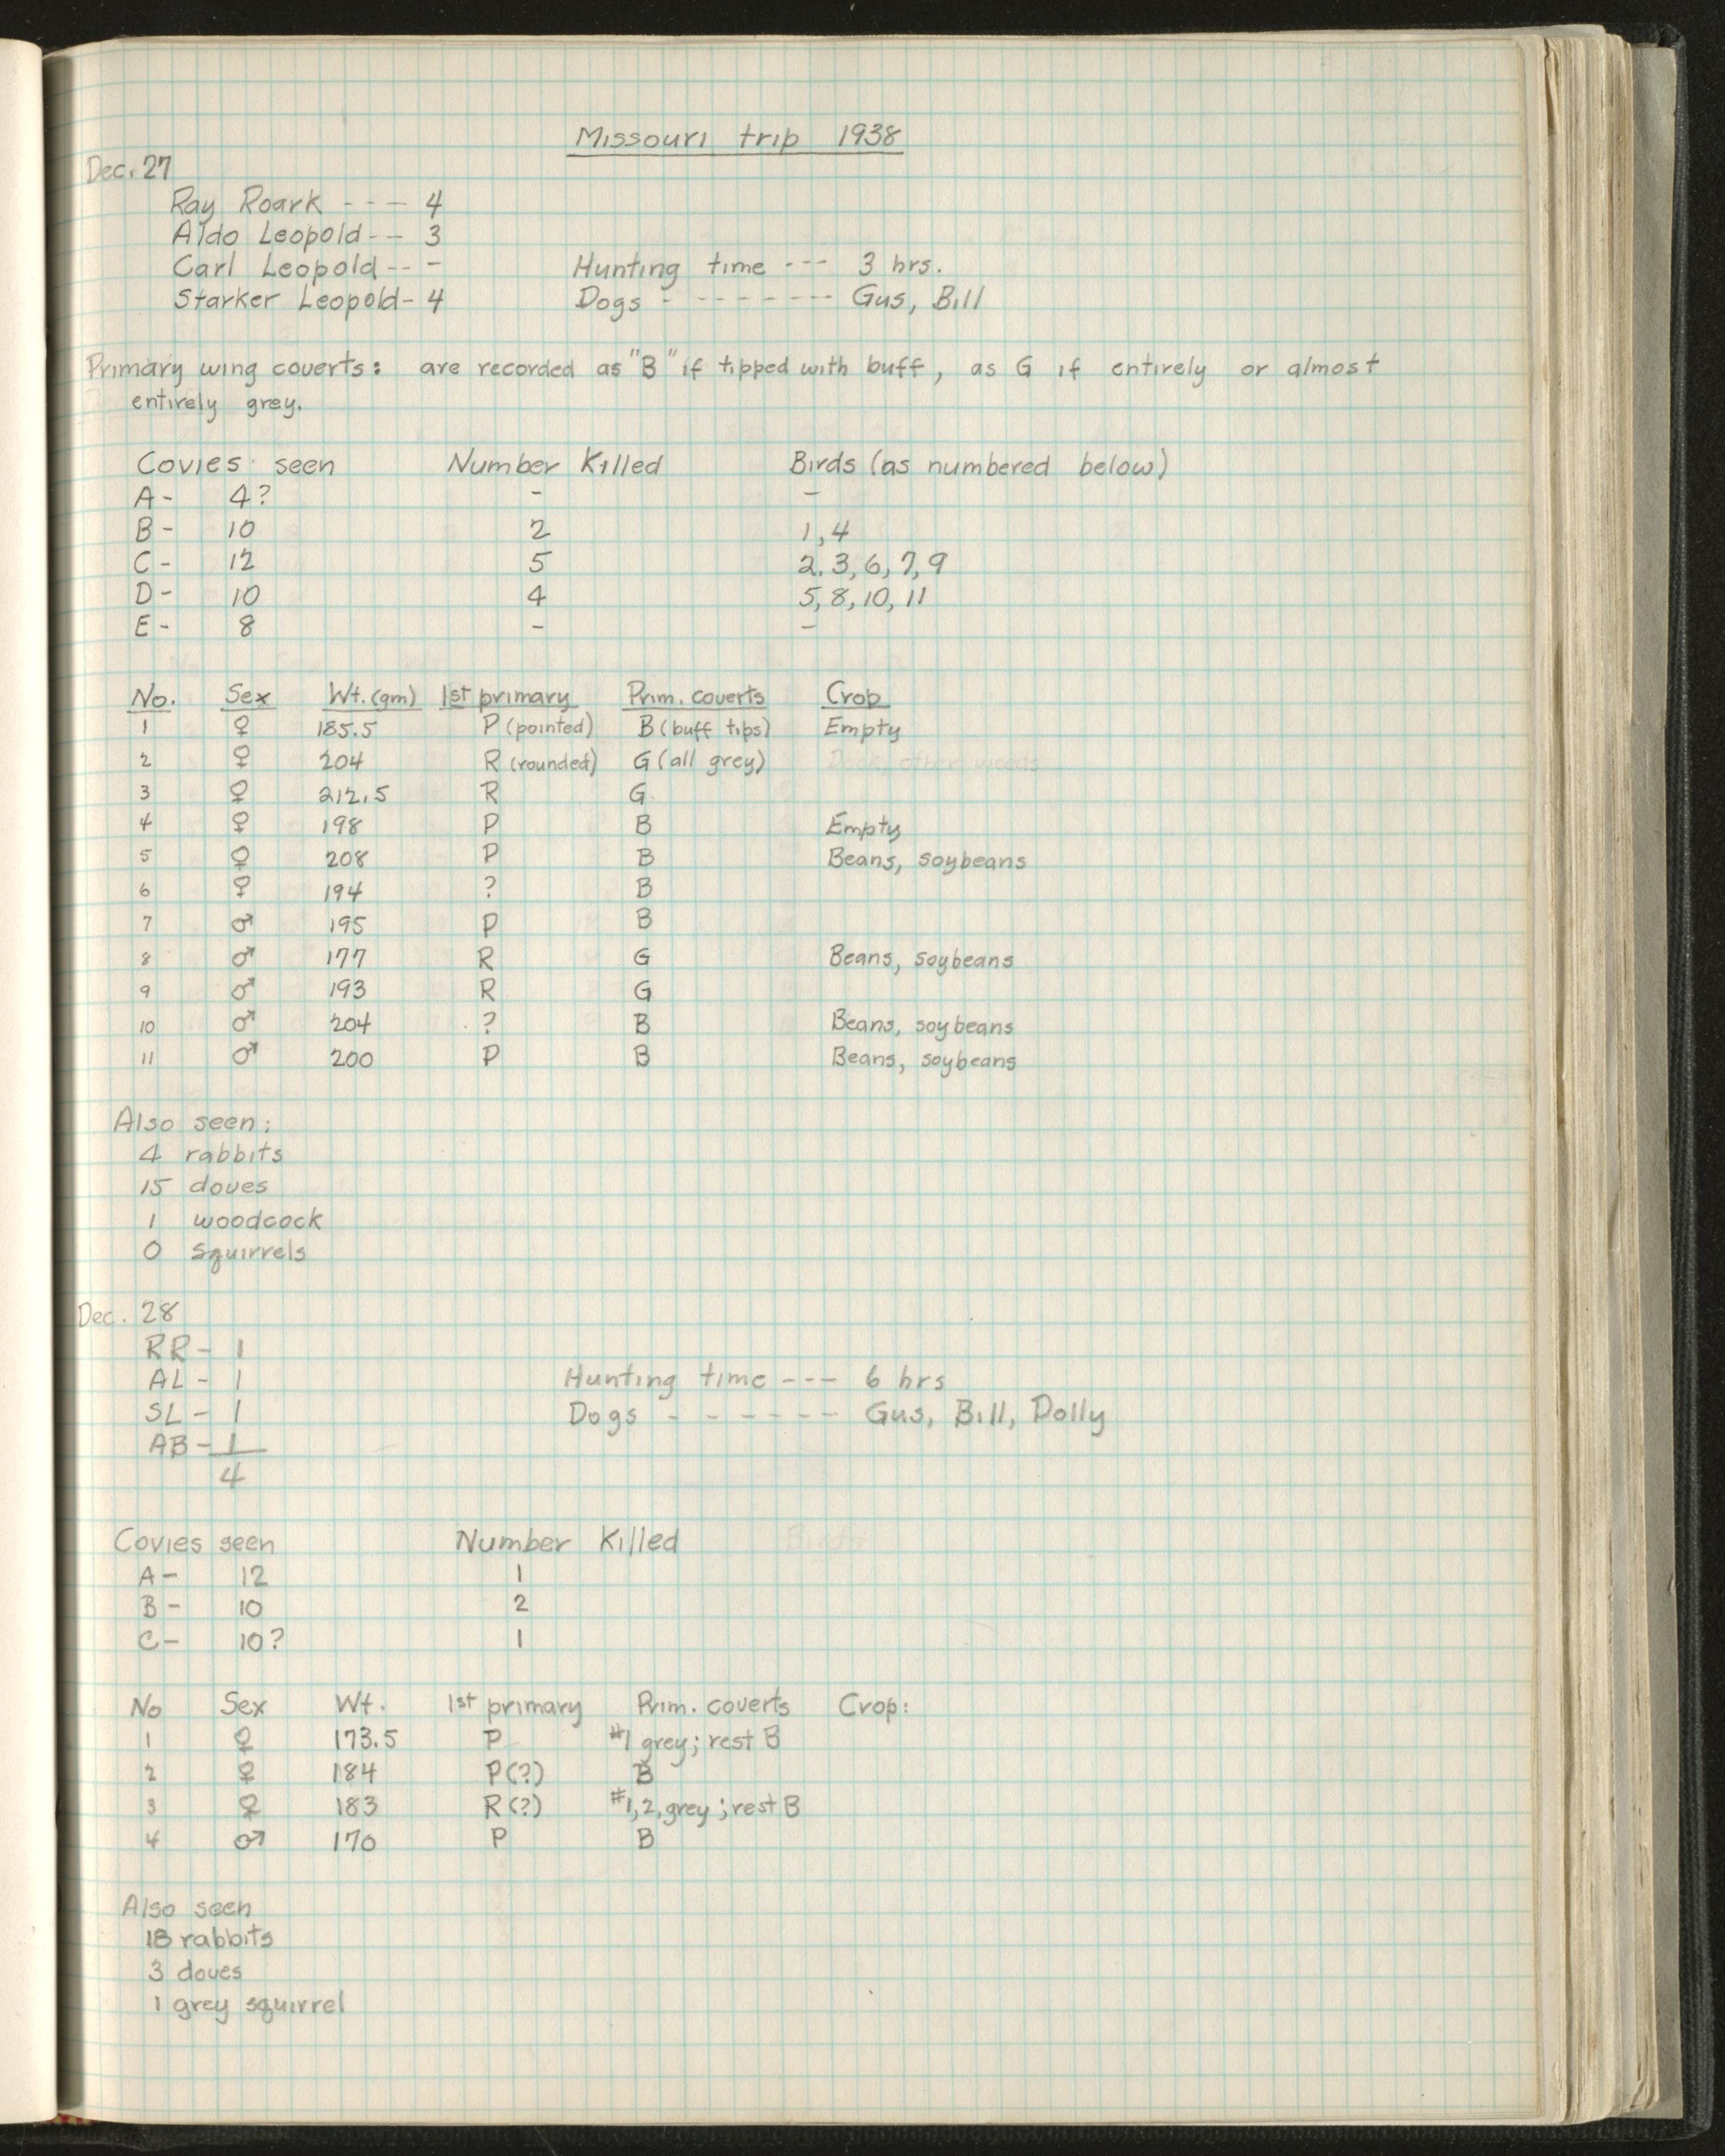 Missouri trip 1938
Dec. 27
Ray Roark --- 4
Aldo Leopold -- 3
Carl Leopold -- -
Hunting time --- 3 hrs.
Starker Leopold - 4
Dogs - ------ Gus, Bill
Primary wing coverts: are recorded as "B" if tipped with buff, as G if entirely or almost
entirely grey.
Covies seen Number Killed Birds (as numbered below)
A - 4? - -
B - 10 2 1, 4
C - 12 5 2, 3, 6, 7, 9
D - 10 4 5, 8, 10, 11
E - 8 - -
No. Sex Wt. (gm) 1st primary Prim. coverts Crop
1 ♀ 185.5 P (pointed) B (buff tips) Empty
2 ♀ 204 R (rounded) G (all grey) other weeds
3 ♀ 212.5 R G
4 ♀ 198 P B Empty
5 ♀ 208 P B Beans, soybeans
6 ♀ 194 ? B
7 ♂ 195 P B
8 ♂ 177 R G Beans, soybeans
9 ♂ 193 R G
10 ♂ 204 ? B Beans, soybeans
11 ♂ 200 P B Beans, soybeans
Also seen:
4 rabbits
15 doves
1 woodcock
0 squirrels
Dec. 28
RR - 1
AL - 1
Hunting time --- 6 hrs
SL - 1
Dogs - ------ Gus, Bill, Dolly
AB - 1
4
Covies seen Number Killed Birds
A - 12 1
B - 10 2
C - 10? 1
No Sex Wt. 1st primary Prim. coverts Crop:
1 ♀ 173.5 P #1 grey; rest B
2 ♀ 184 P (?) B
3 ♀ 183 R (?) #1, 2, grey; rest B
4 ♂ 170 P B
Also seen
18 rabbits
3 doves
1 grey squirrel